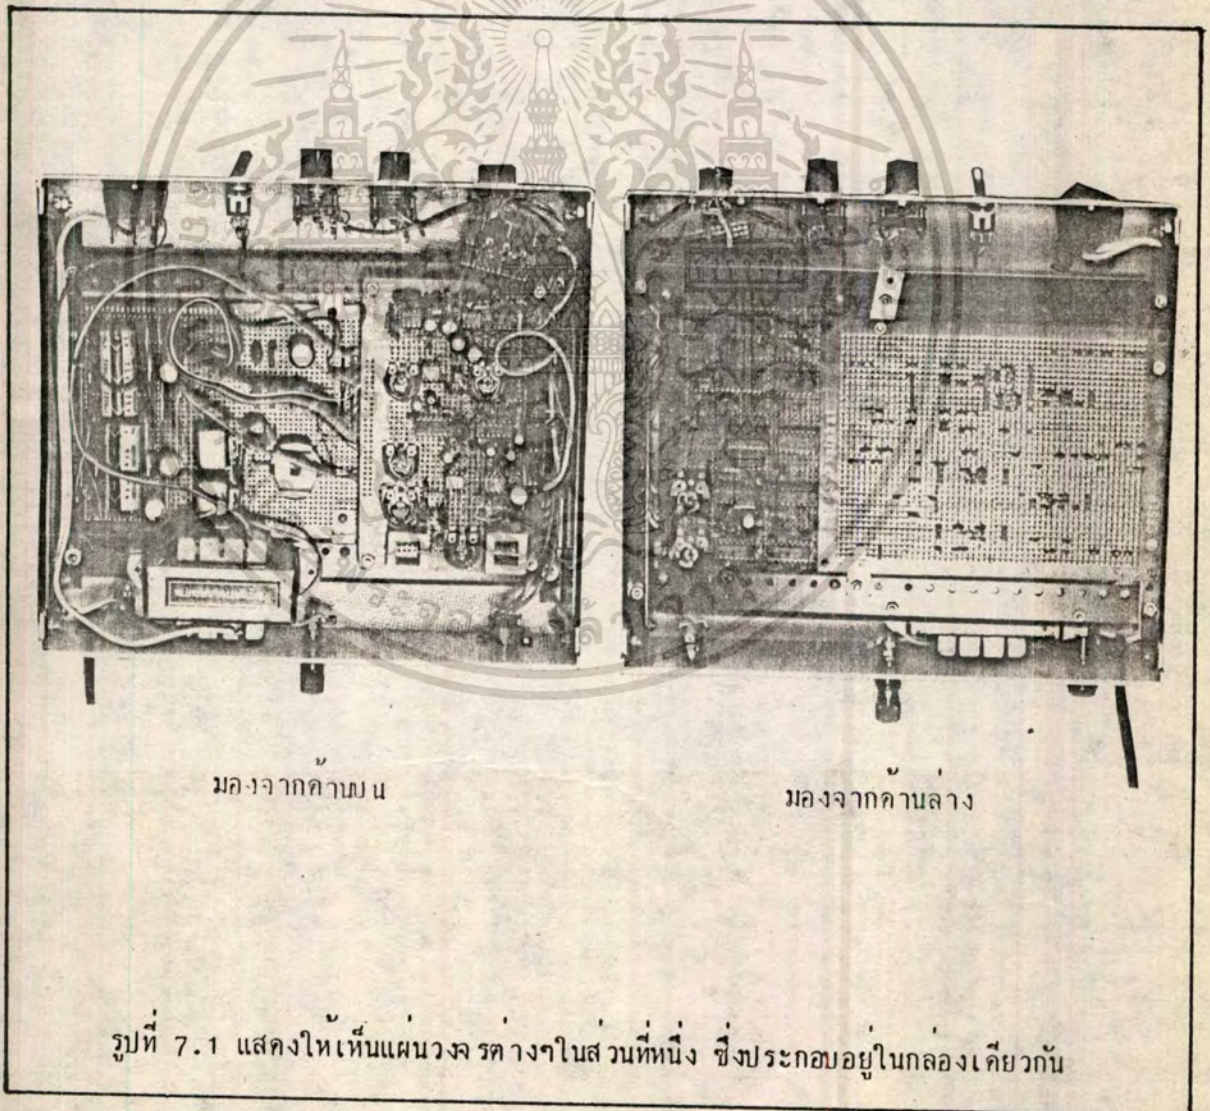 มองจากด้านบน
มองจากด้านล่าง
รูปที่ 7.1 แสดงให้เห็นแผ่นวงจรต่างๆในส่วนที่หนึ่ง ซึ่งประกอบอยู่ในกล่องเดียวกัน